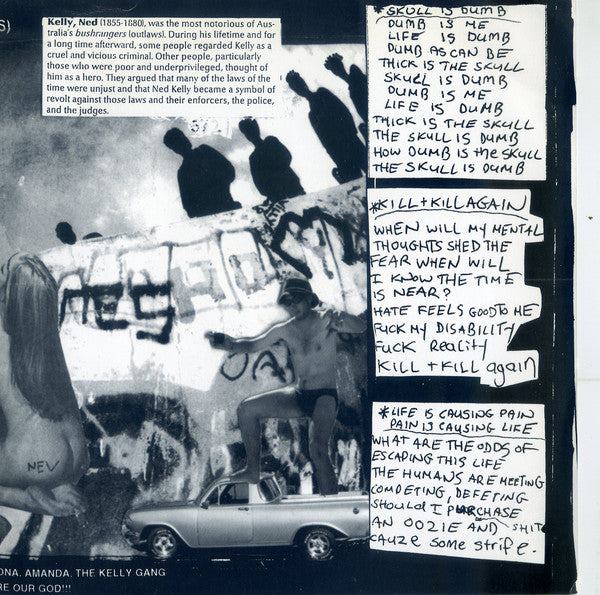 S)
Kelly, Ned (1855-1880), was the most notorious of Aus-
tralia's bushrangers (outlaws). During his lifetime and for
a long time afterward, some people regarded Kelly as a
cruel and vicious criminal. Other people, particularly
those who were poor and underprivileged, thought of
him as a hero. They argued that many of the laws of the
time were unjust and that Ned Kelly became a symbol of
revolt against those laws and their enforcers, the police,
and the judges.
NEV
ONA. AMANDA. THE KELLY GANG
RE OUR GOD!!!
*SKULL IS DUMB
DUMB IS ME
LIFE IS DUMB
DUMB AS CAN BE
THICK IS THE SKULL
SKULL IS DUMB
DUMB IS ME
LIFE IS DUMB
THICK IS THE SKULL
THE SKULL IS DUMB
HOW DUMB IS the SKULL
THE SKULL IS DUMB
*KILL + KILL AGAIN
WHEN WILL MY MENTAL
THOUGHTS SHED THE
FEAR WHEN WILL
I KNOW THE TIME
IS NEAR?
HATE FEELS GOOD TO ME
FUCK MY DISABILITY
FUCK Reality
KILL + KILL again
*LIFE IS CAUSING PAIN
PAIN IS CAUSING LIFE
WHAT ARE THE ODDS OF
ESCAPING THIS LIFE
THE HUMANS ARE MEETING
COMPETING, DEFETING
Should I PURCHASE
AN OOZIE AND SHIT
cauze some strife.